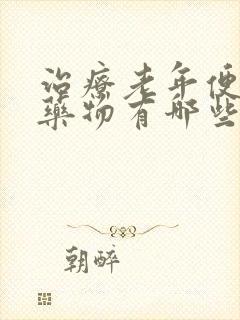 治療老年便
藥物有哪些
朝醉